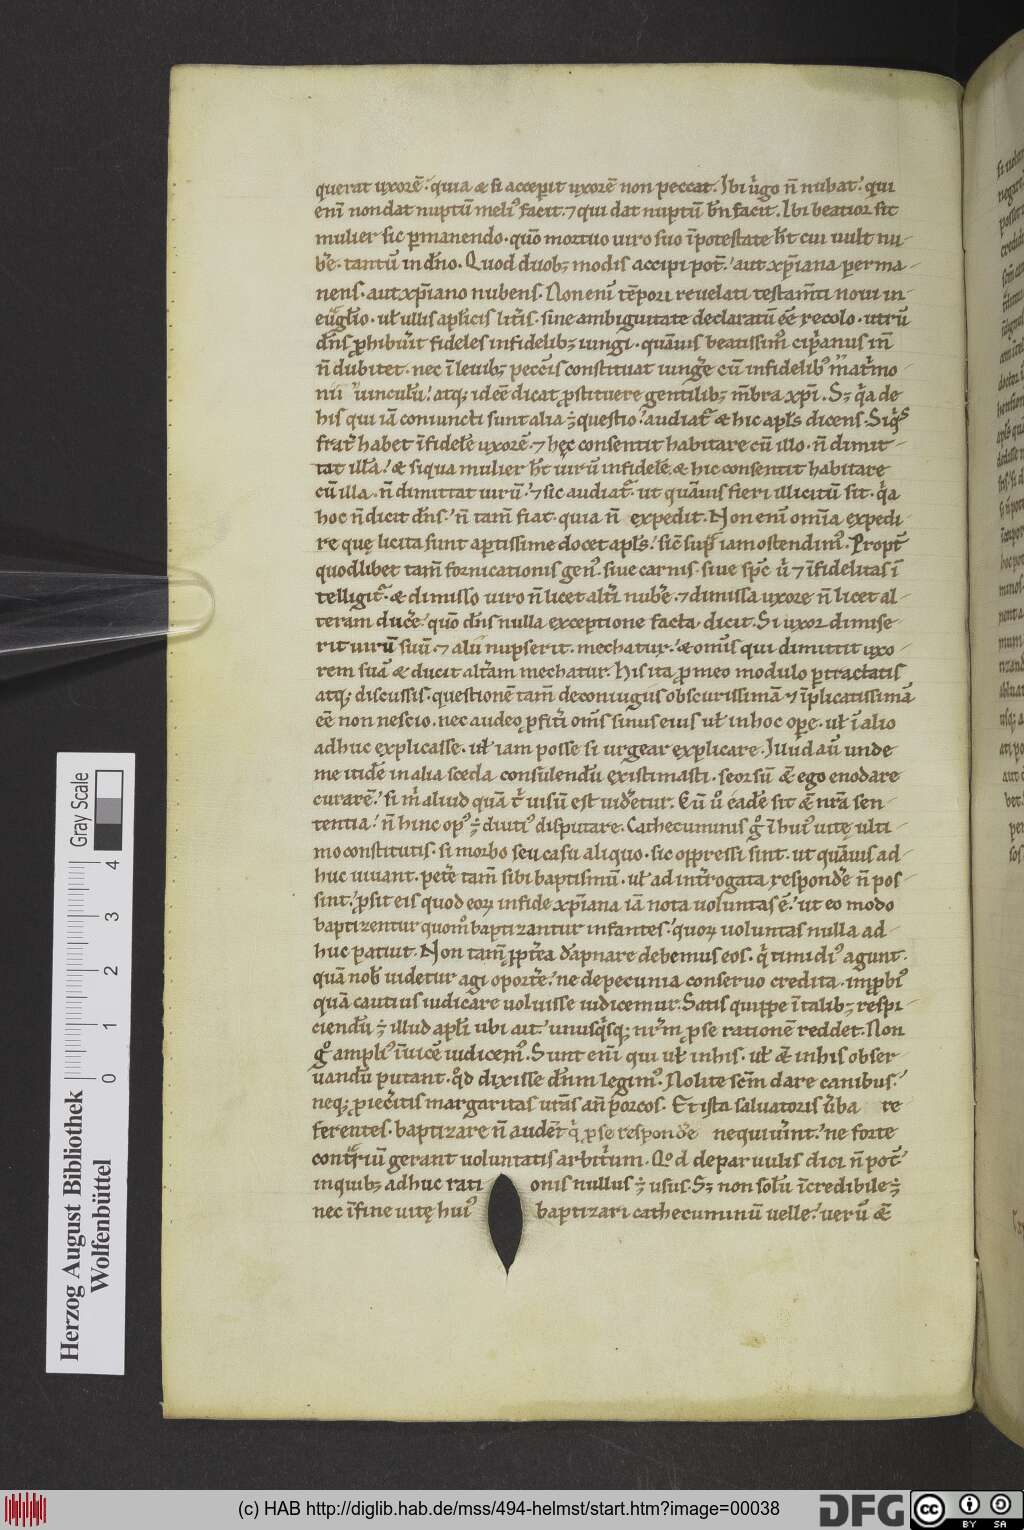 querat uxorē. quia & si acceperit uxorē non peccat. Ibi ugo n̄ nubat. qui
eni᷒ non dat nuptū meli᷒ facit. ⁊ qui dat nuptū bn̄ facit. Ibi beatior sit
mulier sic ꝑmanendo. quō mortuo uiro suo īpotestate ht̄ cui uult nu-
be͛. tantū in dn̄o. Quod duobꝫ modis accipi pot̄. aut xp̄iana perma-
nens. aut xp̄iano nubens. Non eni᷒ tēpori reuelati testam̄ti noui in
euḡl̄io. ul̄ ullis apl̄icis litis. sine ambiguitate declaratū eē recolo. utrū
dn̄s ꝓhibuit fideles infidelibꝫ iungi. quāuis beatissim᷒ cip̄anus in̄
n̄ dubitet. nec ī leuibꝫ peccis constituat iunge cū infidelib᷒ matmo
nii uinculū. atqꝫ idēē dicat ꝓstituere gentilibꝫ mb̄ra xp̄i. Sꝫ qa de
his qui iā coniuncti sunt alia ÷ questio. audiat & hic apl̄s dicens. Siqs
frat habet īfidelē uxorē. ⁊ hęc consentit habitare cū illo. n̄ dimit-
tat illā. & siqua mulier ht̄ uirū infidelē. & hic consentit habitare
cū illa. n̄ dimittat uirū. ⁊ sic audiat. ut quāuis fieri illicitū sit. qa
hoc n̄ dicit dn̄s. n̄ tam̄ fiat. quia n̄ expedit. Non eni᷒ om̄ia expedi-
re quę licita sunt aꝑtissime docet apl̄s. sic̄ sup̄ iam ostendim᷒. Propt̄
quodlibet tam̄ fornicationis gen᷒. siue carnis. siue sp̄c u ⁊ īfidelitas ī
telligit. & dimisso uiro n̄ licet alti nube. ⁊ dimissa uxore n̄ licet al-
teram duce. quō dn̄s nulla exceptione facta dicit. Si uxor dimise
rit uirū suū. ⁊ aliū nupserit. mechatur. & om̄is qui dimittit uxo
rem suā & ducit altam mechatur. His ita ꝓ meo modulo ꝑtractatis
atqꝫ discussis. questionē tam̄ de coniugiis obscurissimā ⁊ īplicatissimā
eē non nescio. nec audeo ꝓfiti om̄s sinus eius ul̄ in hoc ope. ul̄ ī alio
adhuc explicasse. ul̄ iam posse si urgear explicare. Illud aū unde
me itidē in alia sceda consulendū existimasti. seorsū & ego enodare
curarē. si m aliud quā t uisū est uidetur. Cū u eadē sit & nr̄a sen-
tentia. n̄ hinc op᷒ ÷ diuti᷒ disputare. Cathecuminis g ī hui᷒ uitę ulti-
mo constitutis. si morbo seu casu aliquo. sic oppressi sint. ut quāuis ad-
huc uiuant. pete tam̄ sibi baptismū. ul̄ ad intrrogata respondē n̄ pos-
sint. ꝓsit eis quod eoꝝ in fide xp̄iana iā nota uoluntas ē. ut eo modo
baptizentur quom᷒ baptizantur infantes. quoꝝ uoluntas nulla ad-
huc patuit. Non tam̄ ꝓpt̄ea dāpnare debemus eos. q timidi᷒ agunt.
quā nob uidetur agi oporte. ne de pecunia conseruo credita. imꝓbi᷒
quā cautius iudicare uoluisse iudicemur. Satis quippe ī talibꝫ respi-
ciendū ÷ illud apl̄i ubi ait. unusqsqꝫ nrm ꝓ se rationē reddet. Non
g ampli᷒ īuicē iudicem᷒. Sunt eni᷒ qui ul̄ in his. ul̄ & in his obser-
uandū putant. qd dixisse dn̄m legim᷒. Nolite scm̄ dare canibus.
neqꝫ ꝓiecitis margaritas uras an̄ porcos. Et ista saluatoris uba re
ferentes. baptizare n̄ audent q ꝓ se respondē nequiuint. ne forte
contriū gerant uoluntatis arbitium. Qd de paruulis dici n̄ pot̄
in quibꝫ adhuc rationis nullus ÷ usus. Sꝫ non solū īcredibile ÷
nec ī fine uitę hui᷒ baptizari cathecuminū uelle. uerū &
Herzog August Bibliothek
Wolfenbüttel
Gray Scale
0 1 2 3 4
(c) HAB http://diglib.hab.de/mss/494-helmst/start.htm?image=00038
DFG
cc BY SA